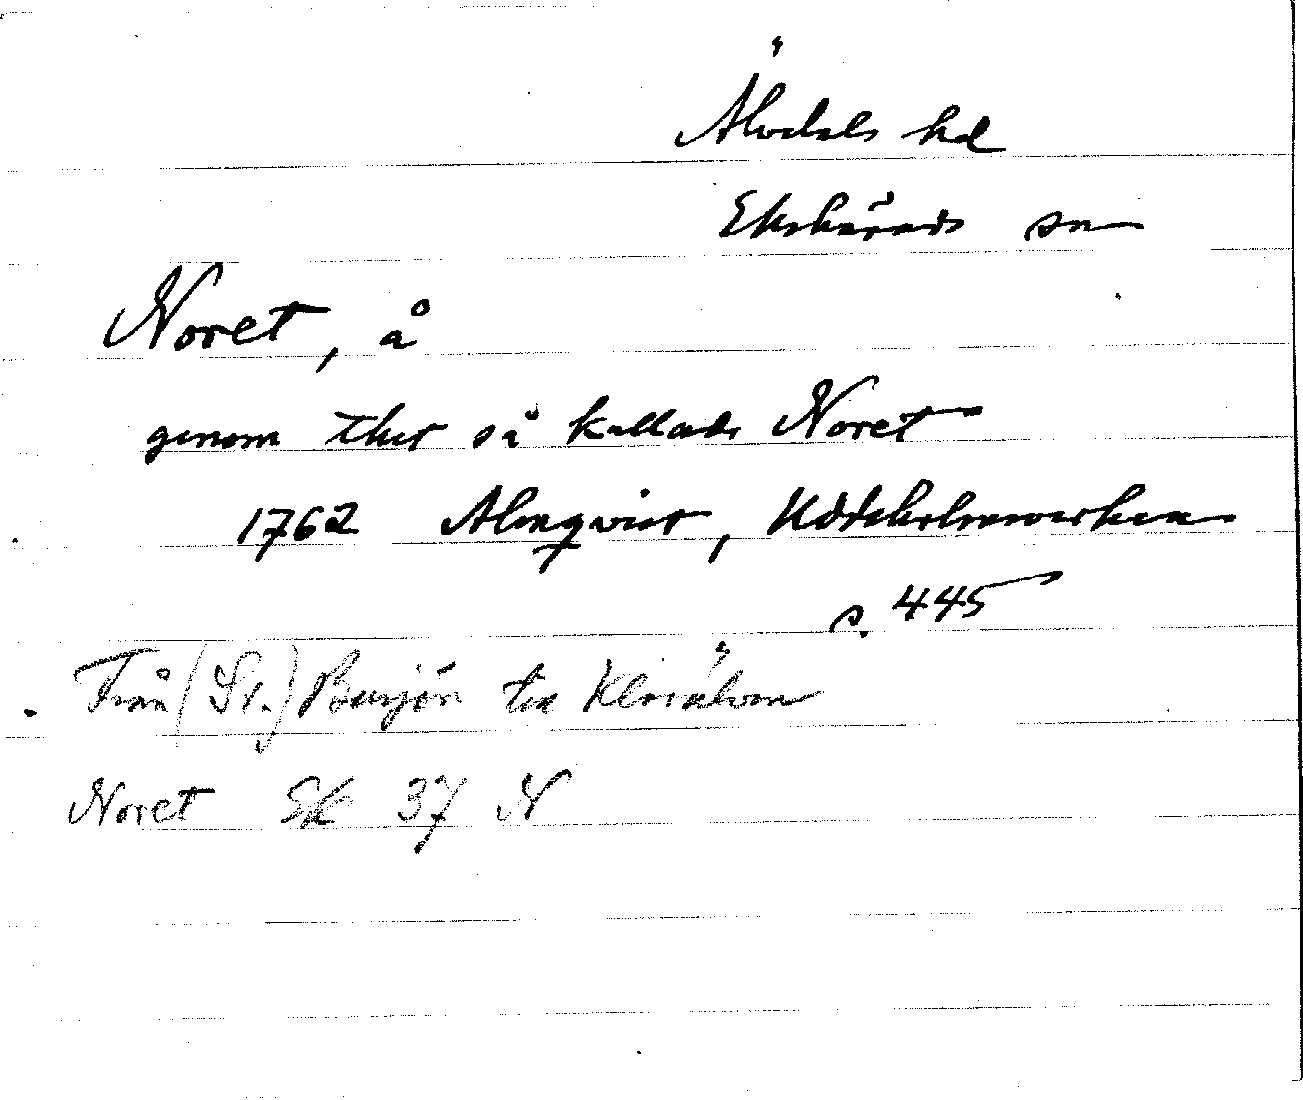 Älvdals hd
Ekshärads sn
Noret, å
genom thet så kallade Noret
1762 Almqvist, Uddeholmsverken
s. 445
Från (St.) Busjön till Klarälven
Noret Ek 37 N